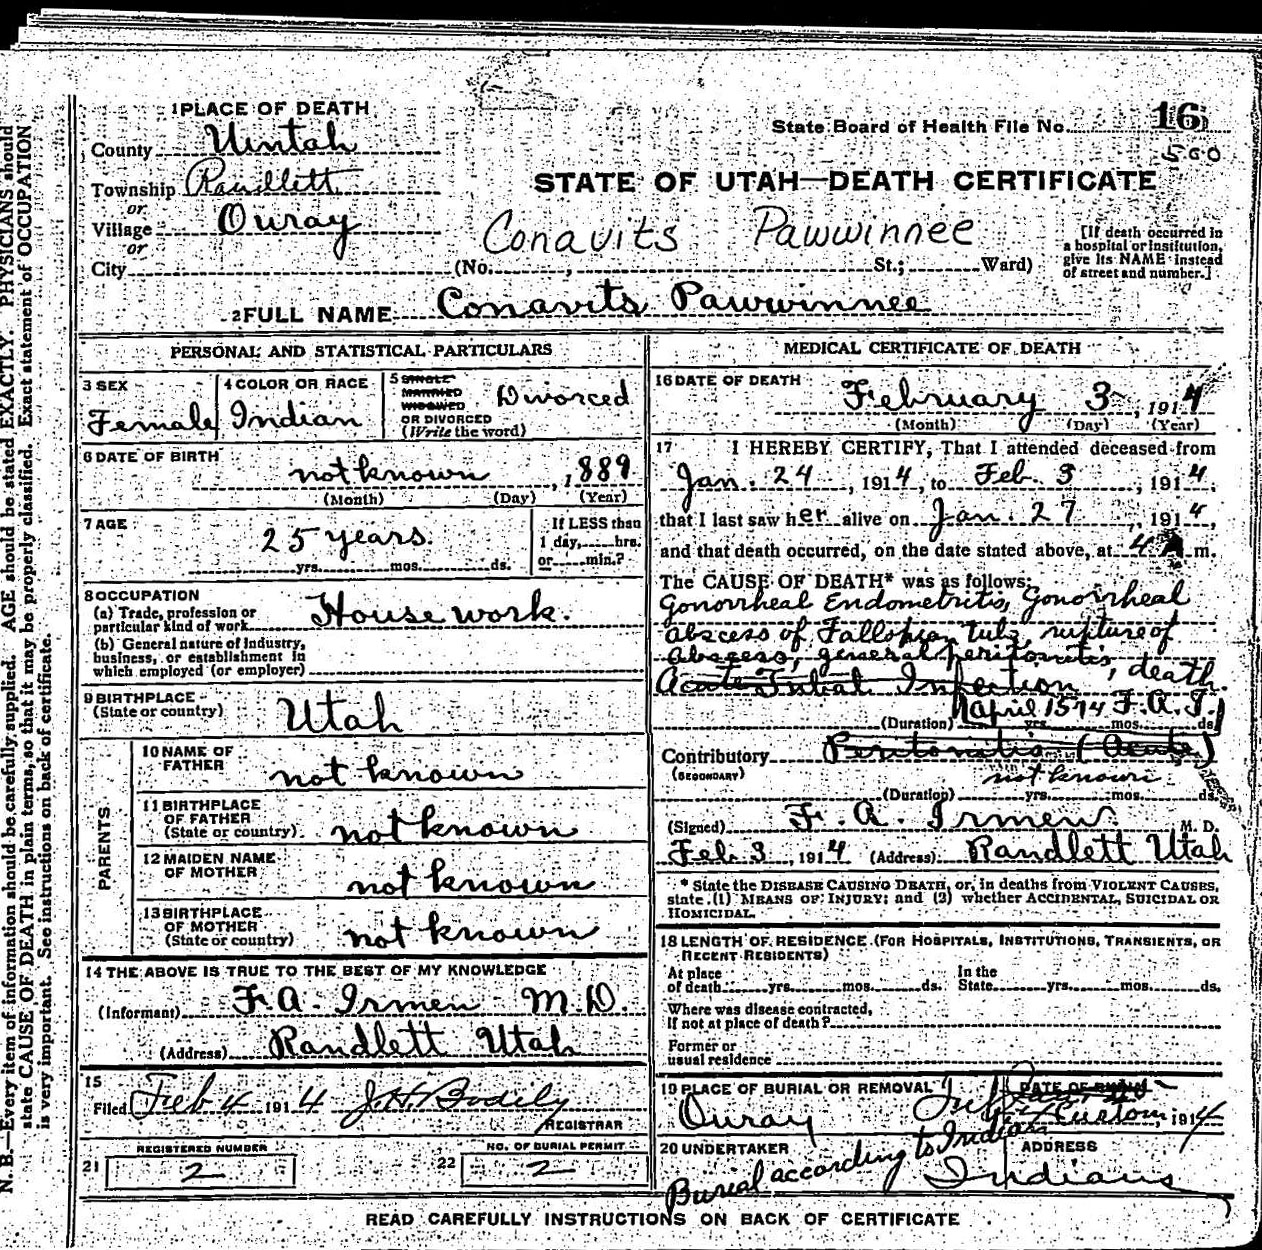 1 PLACE OF DEATH
County Uintah
Township Randlett
or
Village Ouray
or
City (No. , St.; Ward)
State Board of Health File No. 16
500
STATE OF UTAH—DEATH CERTIFICATE
Conavits Pawwinnee
[If death occurred in
a hospital or institution,
give its NAME instead
of street and number.]
2 FULL NAME Conavits Pawwinnee
PERSONAL AND STATISTICAL PARTICULARS
3 SEX
Female
4 COLOR OR RACE
Indian
5 SINGLE
MARRIED
WIDOWED
OR DIVORCED
(Write the word)
Divorced
6 DATE OF BIRTH
not known , 1889
(Month) (Day) (Year)
7 AGE
25 years
yrs. mos. ds.
If LESS than
1 day, hrs.
or min.?
8 OCCUPATION
(a) Trade, profession or
particular kind of work House work.
(b) General nature of industry,
business, or establishment in
which employed (or employer)
9 BIRTHPLACE
(State or country) Utah
PARENTS
10 NAME OF
FATHER not known
11 BIRTHPLACE
OF FATHER
(State or country) not known
12 MAIDEN NAME
OF MOTHER not known
13 BIRTHPLACE
OF MOTHER
(State or country) not known
14 THE ABOVE IS TRUE TO THE BEST OF MY KNOWLEDGE
(Informant) F. A. Irmen M.D.
(Address) Randlett Utah
15
Filed Feb 4 1914 J.H. Bodily
REGISTRAR
REGISTERED NUMBER
21 2
NO. OF BURIAL PERMIT
22 2
MEDICAL CERTIFICATE OF DEATH
16 DATE OF DEATH
February 3 , 1914
(Month) (Day) (Year)
17 I HEREBY CERTIFY, That I attended deceased from
Jan. 24 , 1914, to Feb. 3 , 1914,
that I last saw her alive on Jan. 27 , 1914,
and that death occurred, on the date stated above, at 4 A m.
The CAUSE OF DEATH* was as follows:
Gonorrheal Endometritis, Gonorrheal
abscess of Fallopian tube, rupture of
abscess, general peritonitis, death.
Acute Tubal Infection
April 15 14 F.A.I.
(Duration) yrs. mos. ds.
Contributory Peritonitis (Acute)
(SECONDARY)
not known
(Duration) yrs. mos. ds.
(Signed) F. A. Irmen M. D.
Feb. 3 , 1914 (Address) Randlett Utah
* State the DISEASE CAUSING DEATH, or, in deaths from VIOLENT CAUSES,
state (1) MEANS OF INJURY; and (2) whether ACCIDENTAL, SUICIDAL OR
HOMICIDAL.
18 LENGTH OF RESIDENCE (FOR HOSPITALS, INSTITUTIONS, TRANSIENTS, OR
RECENT RESIDENTS)
At place
of death yrs. mos. ds.
In the
State yrs. mos. ds.
Where was disease contracted,
if not at place of death?
Former or
usual residence
19 PLACE OF BURIAL OR REMOVAL
Ouray
DATE OF BURIAL
, 1914
20 UNDERTAKER
Burial according to Indian Custom
ADDRESS
Indians
READ CAREFULLY INSTRUCTIONS ON BACK OF CERTIFICATE
N. B.—Every item of information should be carefully supplied. AGE should be stated EXACTLY. PHYSICIANS should
state CAUSE OF DEATH in plain terms, so that it may be properly classified. Exact statement of OCCUPATION
is very important. See instructions on back of certificate.